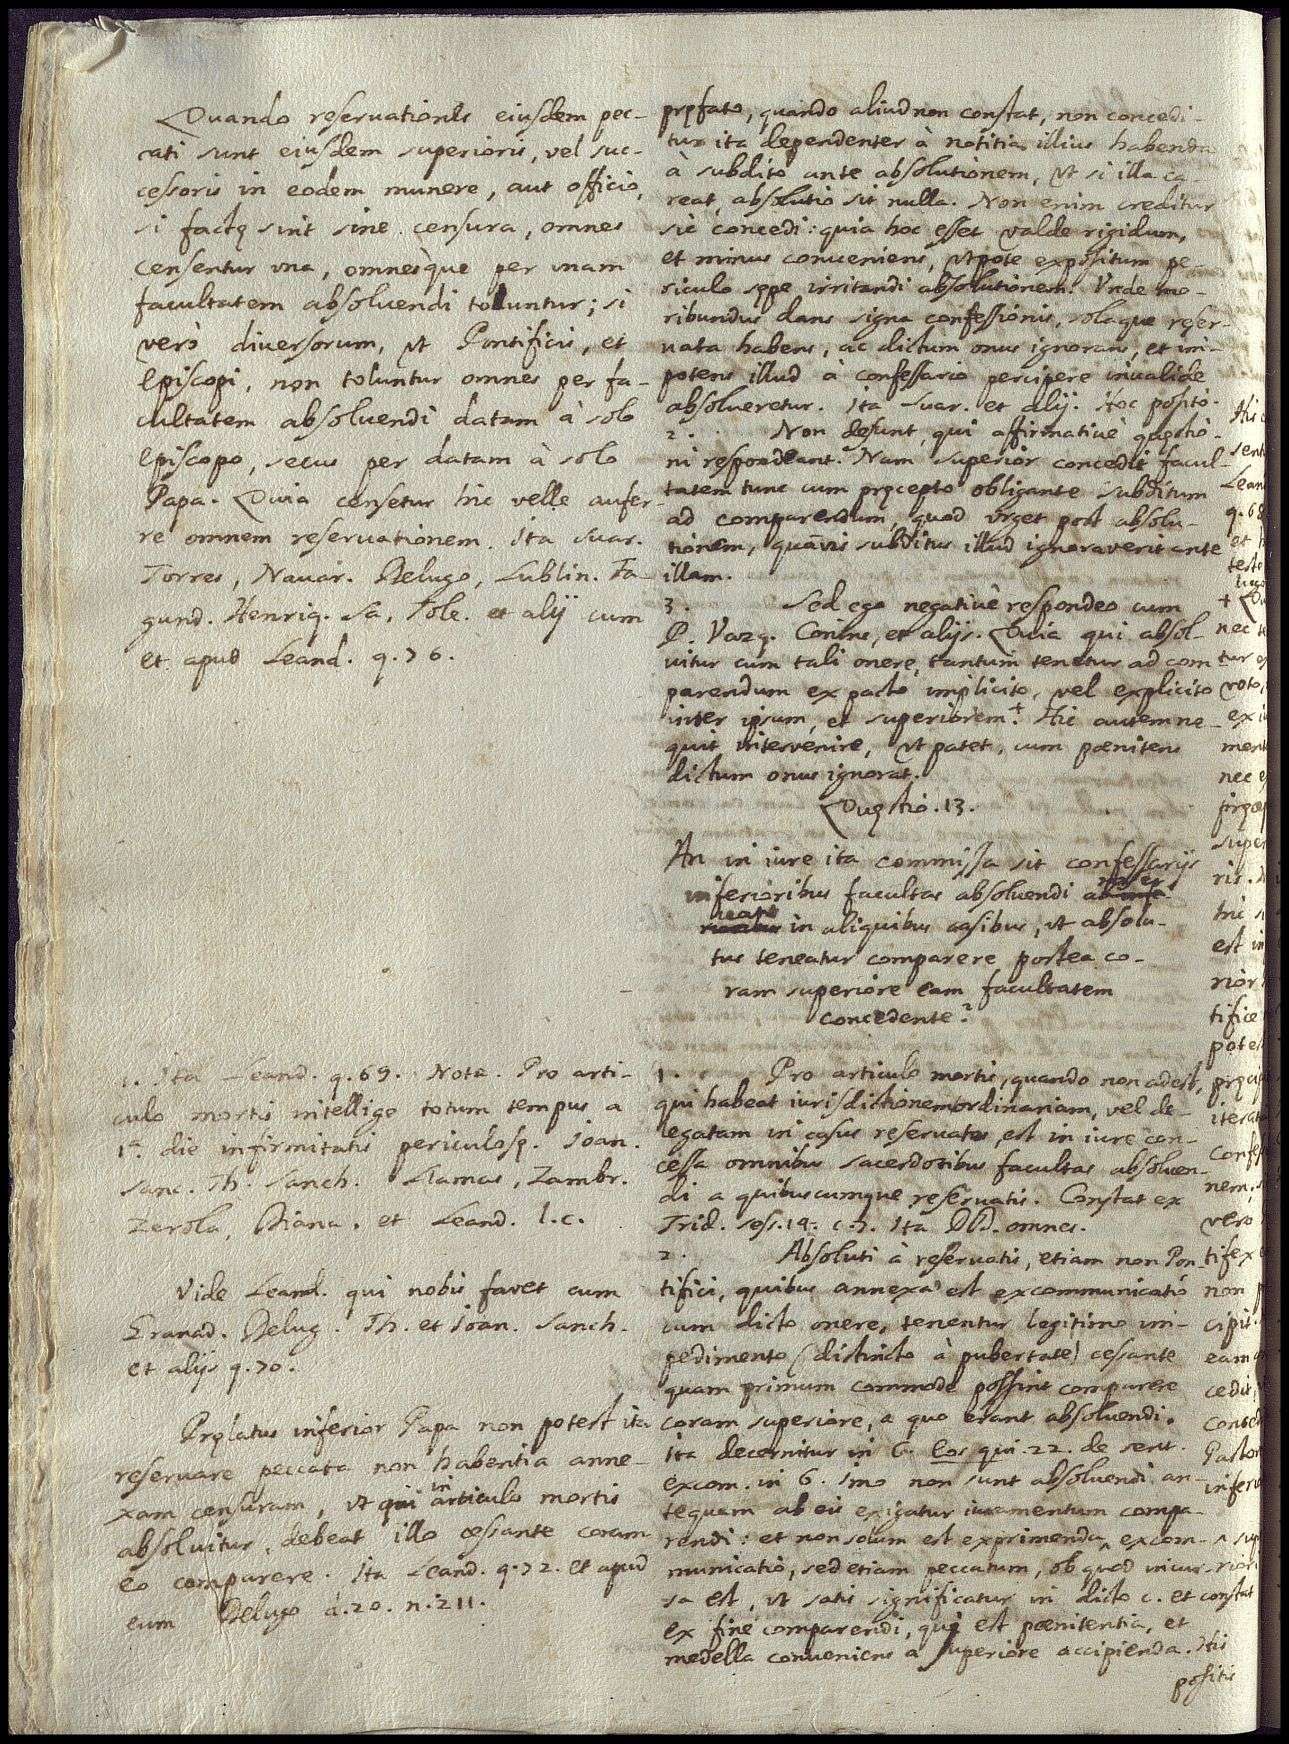 Quando reservationes eiusdem pec-
cati sunt eiusdem superioris, vel suc-
cessoris in eodem munere, aut officio,
si factę sint sine censura, omnes
censentur vna, omnesque per vnam
facultatem absoluendi toluntur; si
verò diuersorum, vt Pontificis, et
Episcopi, non toluntur omnes per fa-
cultatem absoluendi datam à solo
Episcopo, secus per datam à solo
Papa. Quia censetur hic velle aufer-
re omnem reservationem. Ita Suar.
Torres, Nauar. Delugo, Lublin. Fa-
gund. Henriq. Sa, Tole. et alij cum
et apud Leand. q. 76.
1. Ita Leand. q. 69. Nota. Pro arti-
culo mortis intelligo totum tempus a
1ª. die infirmitatis periculosę. Joan.
Sanc. Th. Sanch. Llamas, Zambr.
Zerola, Diana, et Leand. l. c.
Vide Leand. qui nobis favet cum
Granad. Delug. Th. et Joan. Sanch.
et alijs q. 70.
Pręlatus inferior Papa non potest ita
reseruare peccata non habentia anne-
xam censuram, vt qui in articulo mortis
absoluitur, debeat illo cessante coram
eo comparere. Ita Leand. q. 72. et apud
eum Delugo d. 20. n. 211.
pręfato, quando aliud non constat, non concedi-
tur ita dependenter à notitia illius habenda
à subdito ante absolutionem, vt si illa ca-
reat, absolutio sit nulla. Non enim creditur
sic concedi: quia hoc esset valde rigidum,
et minus conueniens, vtpote expositum pe-
riculo sępe irritandi absolutionem. Vnde mo-
ribundus dans signa confessionis, solaque reser-
uata habens, ac dictum onus ignorans, et im-
potens illud à confessario percipere inualide
absolueretur. Ita Suar. et alij. Hoc posito.
2. Non desunt, qui affirmatiuè quęstio-
ni respondeant. Nam superior concedit facul-
tatem tunc cum pręcepto obligante subditum
ad comparendum, quod vrget post absolu-
tionem, quamuis subditus illud ignoraverit ante
illam.
3. Sed ego negatiuè respondeo cum
P. Vazq. Coninc, et alijs. Quia qui absol-
uitur cum tali onere, tantum tenetur ad com
parendum ex pacto implicito, vel explicito
inter ipsum, et superiorem.+ Hic autem ne-
quit intervenire, vt patet, cum pœnitens
dictum onus ignorat.
Quęstio. 13.
An in iure ita commissa sit confessarijs
inferioribus facultas absoluendi a reser
uatis in aliquibus casibus, vt absolu-
tus teneatur comparere postea co-
ram superiore eam facultatem
concedente?
1. Pro articulo mortis, quando non adest,
qui habeat iurisdictionem ordinariam, vel de-
legatam in casus reseruatos, est in iure con-
cessa omnibus sacerdotibus facultas absoluen-
di a quibuscumque reseruatis. Constat ex
Trid. sess. 14. c. 7. Ita DD. omnes.
2. Absoluti à reseruatis, etiam non Pon-
tifici, quibus annexa est excommunicatio
cum dicto onere, tenentur legitimo im-
pedimento (distincto à pubertate) cessante
quam primum commode possint comparere
coram superiore, a quo erant absoluendi.
Ita decernitur in C. Eos qui. 22. de sent.
excom. in 6. Imo non sunt absoluendi an-
tequam ab eis exigatur iuramentum compa-
rendi: et non solum est exprimenda excom-
municatio, sed etiam peccatum, ob quod incur-
sa est, vt satis significatur in dicto c. et constat
ex fine comparendi, qui est pœnitentia, et
medella conueniens a superiore accipienda. His
positis
nec
tur
voto,
nec
super
est in
rior
tifice
vero
tifex
non
eam
Pastor